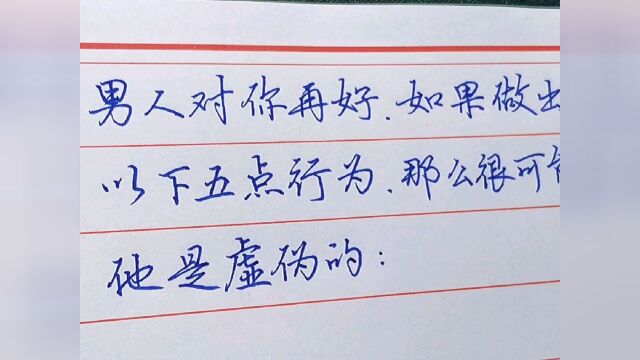 男人对你再好.如果做出
以下五点行为.那么很可
他是虚伪的: